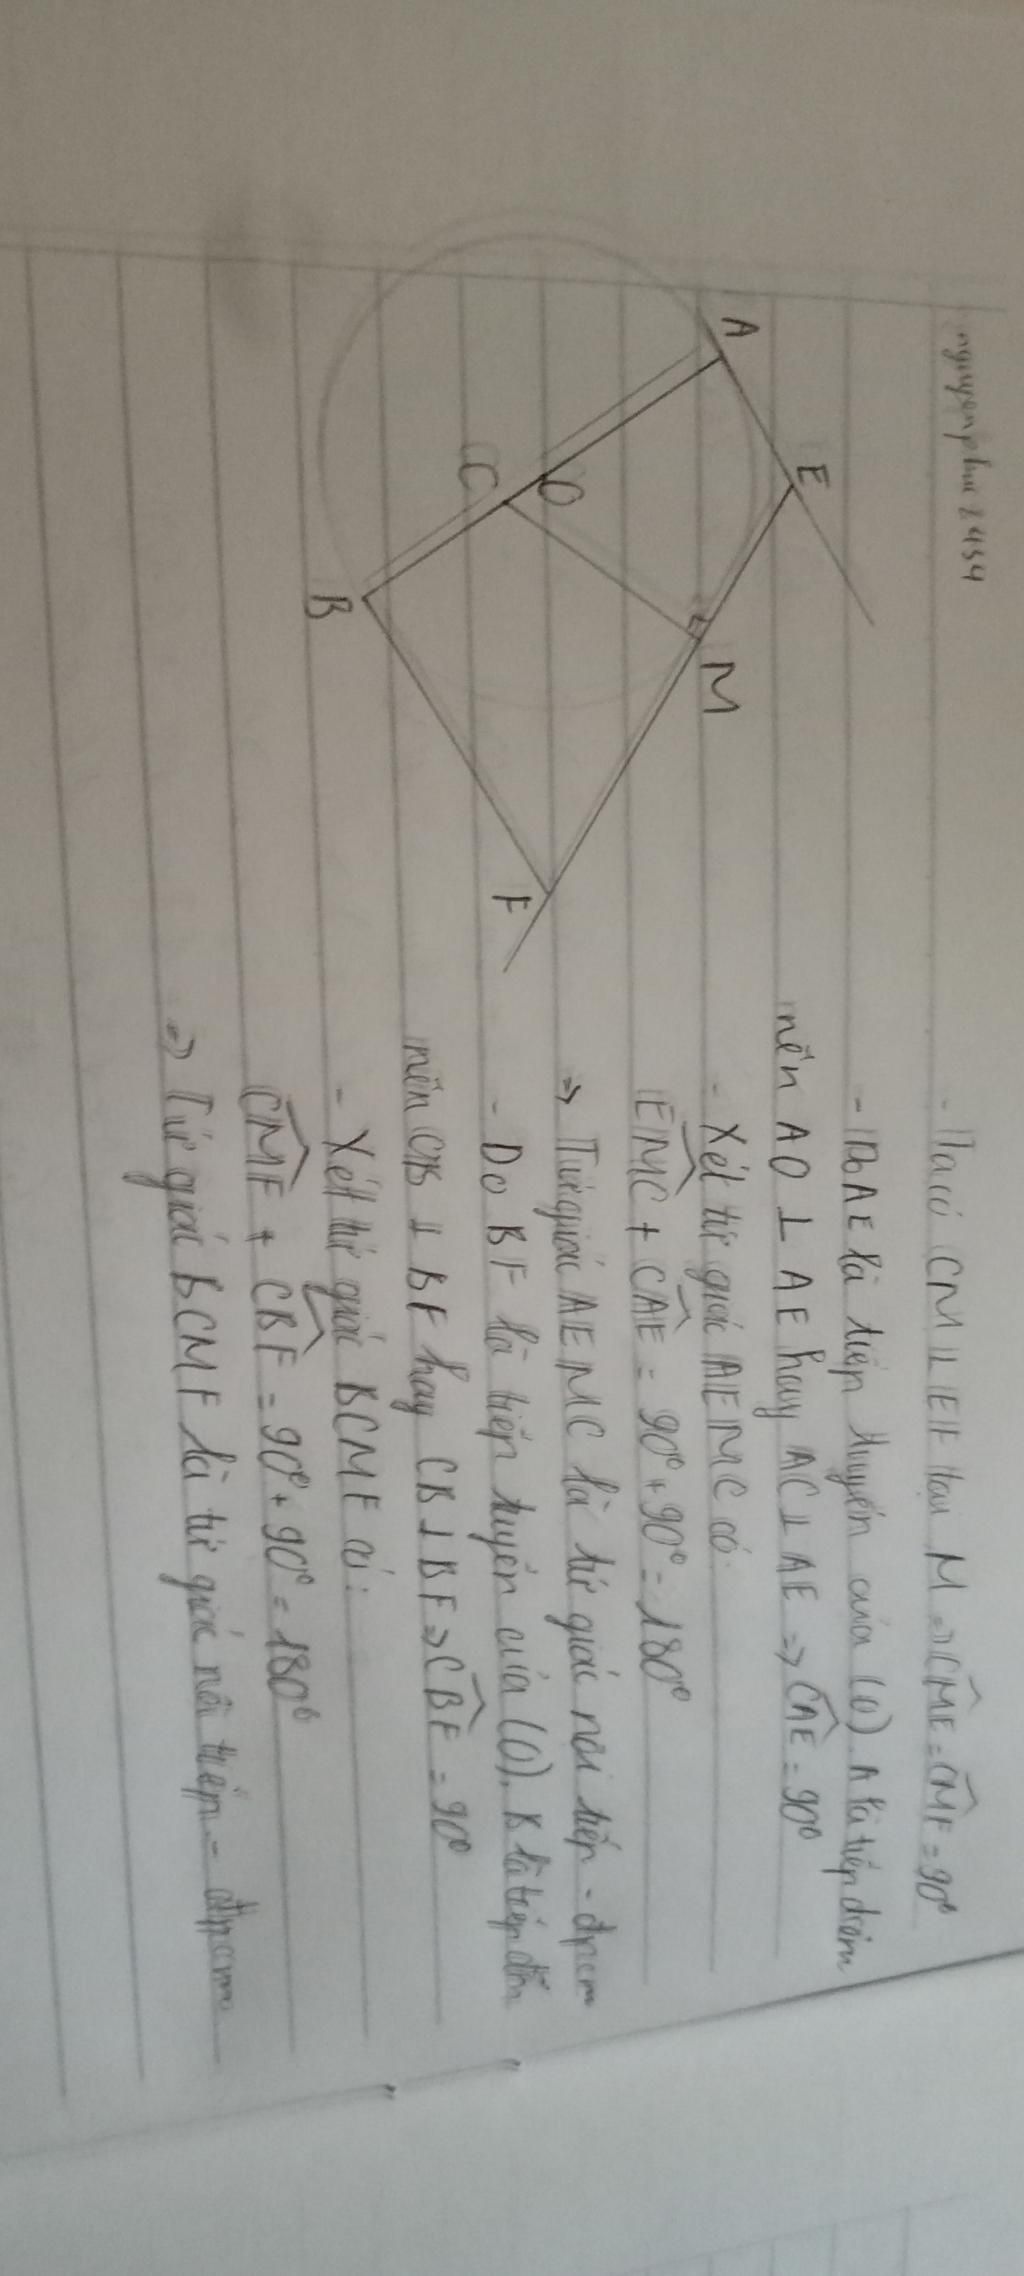 nguyenphuc2434
- Ta có CM ⊥ EF tại M => CME = CMF = 90°
- Do AE là tiếp tuyến của (O), A là tiếp điểm
nên AO ⊥ AE hay AC ⊥ AE => CAE = 90°
- Xét tứ giác AEMC có:
EMC + CAE = 90° + 90° = 180°
=> Tứ giác AEMC là tứ giác nội tiếp - đpcm
- Do BF là tiếp tuyến của (O), B là tiếp điểm
nên OB ⊥ BF hay CB ⊥ BF => CBF = 90°
- Xét tứ giác BCMF có:
CMF + CBF = 90° + 90° = 180°
=> Tứ giác BCMF là tứ giác nội tiếp - đpcm
A
E
O
C
M
B
F